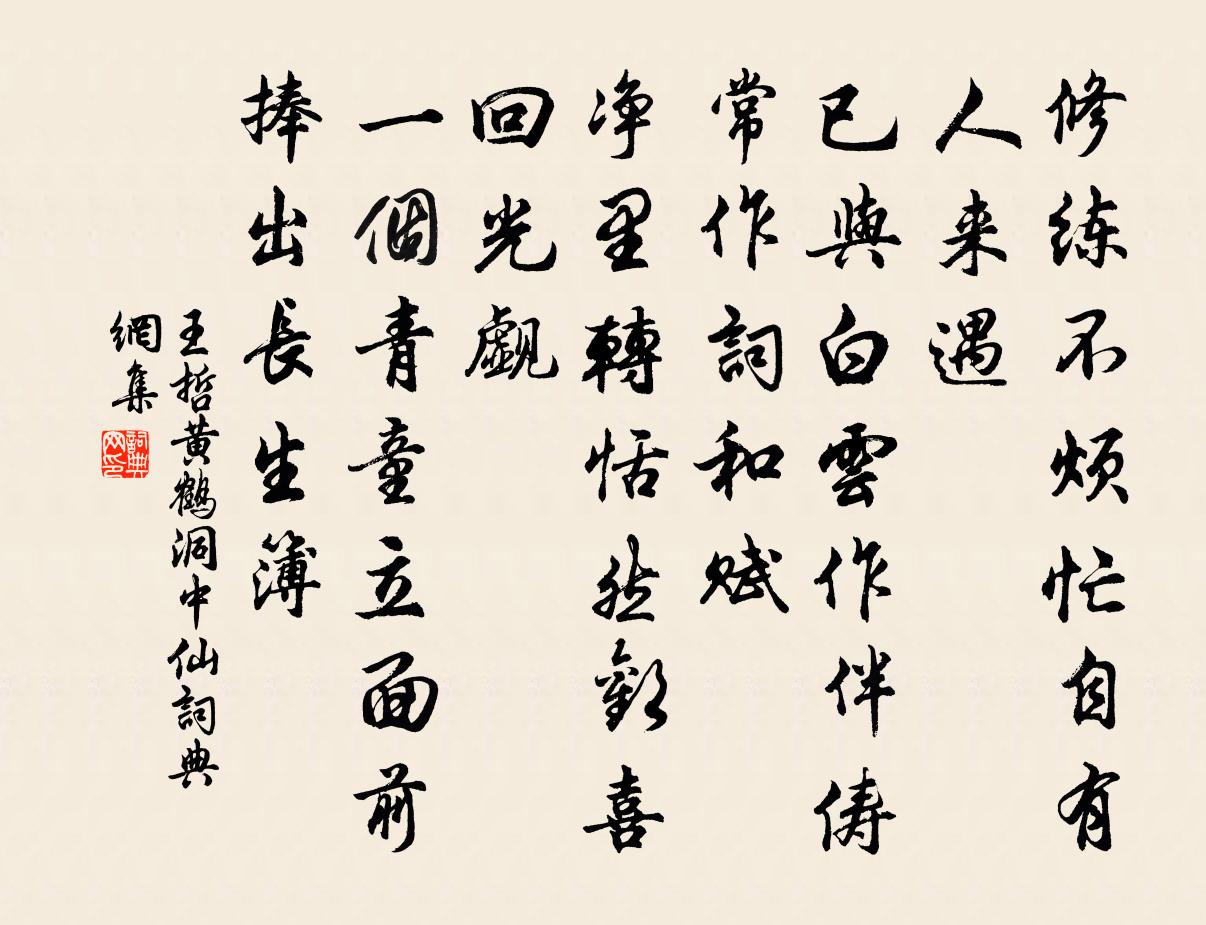 修练不烦忙自有
人来遇
已與白雲作伴俦
常作詞和赋
净里轉恬然歡喜
回光觑
一個青童立面前
捧出長生簿
王哲黄鹤洞中仙詞典
網集
詞典
网印